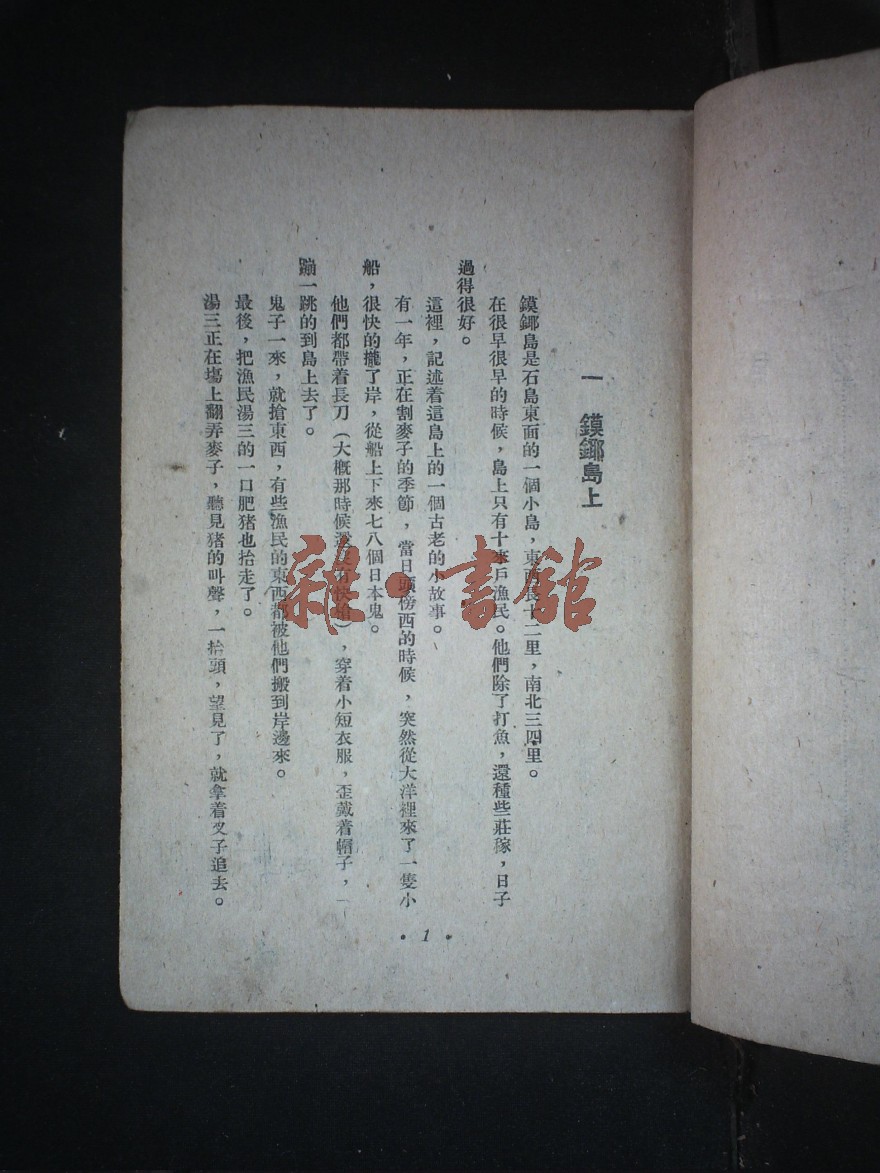 一 鏌鎁島上
鏌鎁島是石島東面的一個小島，東西長十二里，南北三四里。
在很早很早的時候，島上只有十來戶漁民。他們除了打魚，還種些莊稼，日子
過得很好。
這裡，記述着這島上的一個古老的小故事。
有一年，正在割麥子的季節，當日頭傍西的時候，突然從大洋裡來了一隻小
船，很快的攏了岸，從船上下來七八個日本鬼。
他們都帶着長刀（大概那時候還沒有快槍），穿着小短衣服，歪戴着帽子，一
蹦一跳的到島上去了。
鬼子一來，就搶東西，有些漁民的東西都被他們搬到岸邊來。
最後，把漁民湯三的一口肥猪也抬走了。
湯三正在場上翻弄麥子，聽見猪的叫聲，一抬頭，望見了，就拿着叉子追去。
• 1 •
雜·書館